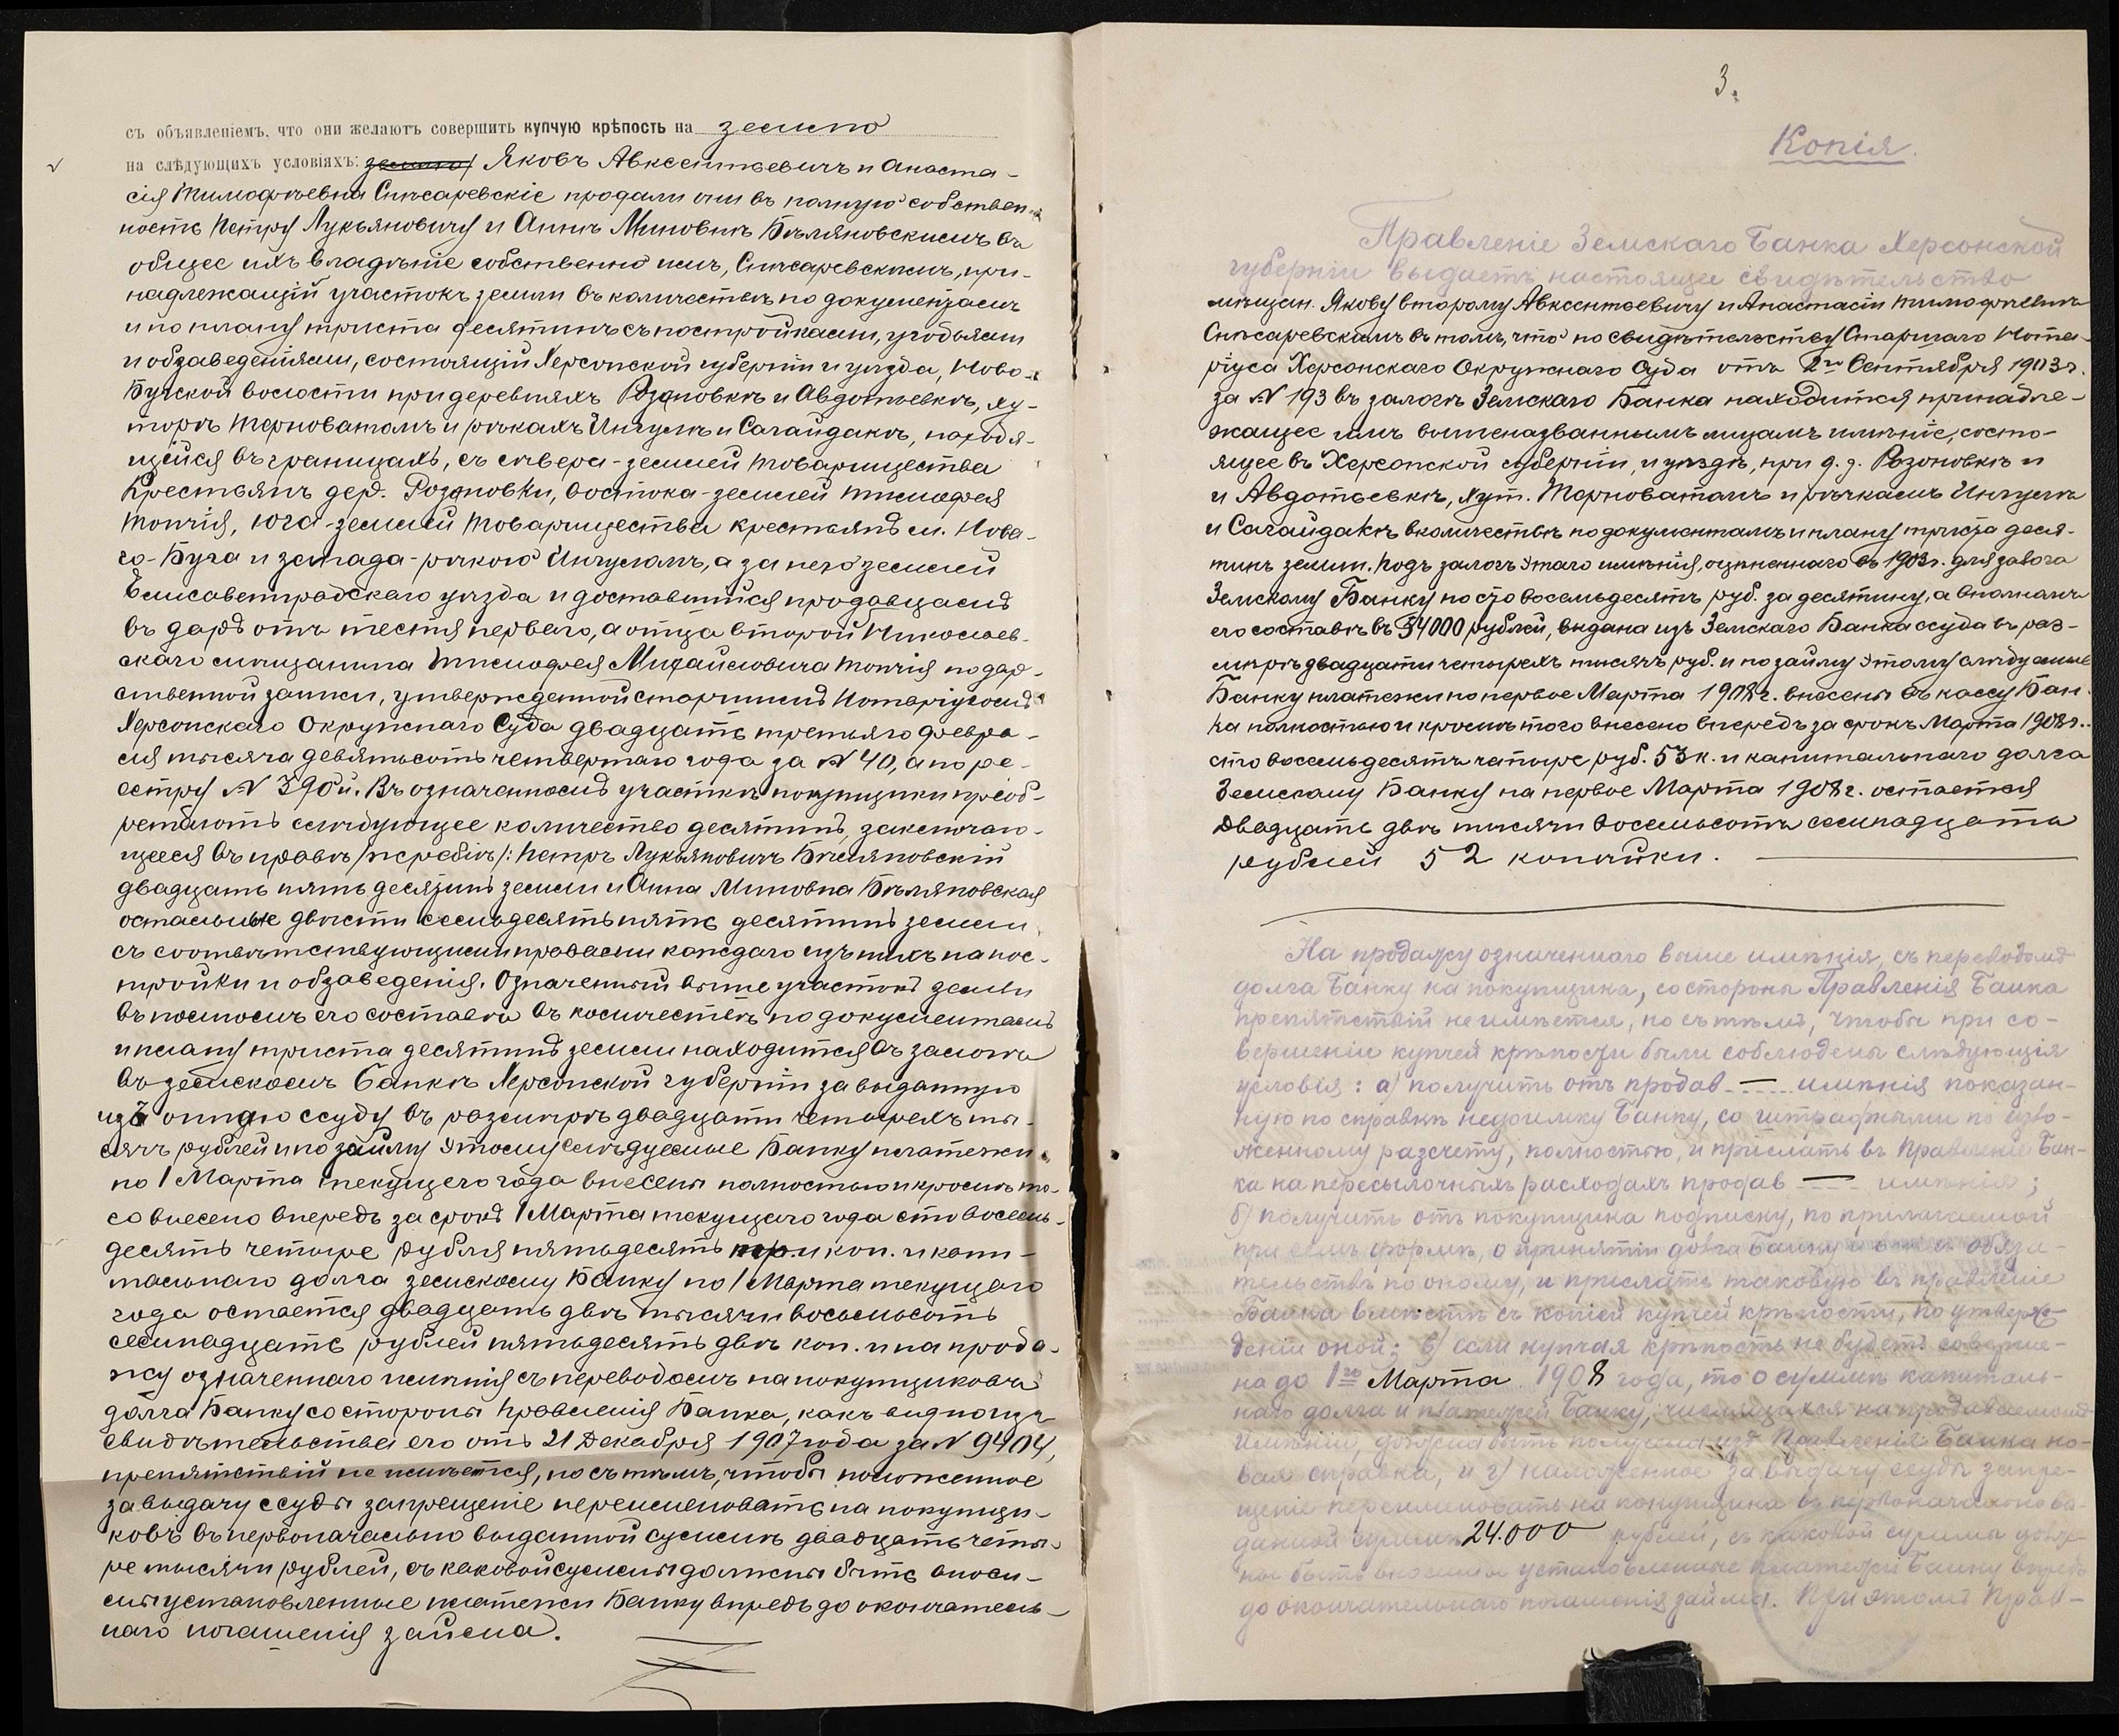 съ объявленіемъ, что они желаютъ совершить купчую крѣпость на землю
на слѣдующихъ условіяхъ: Яковъ Авксентьевичъ и Анаста-
сія Тимофѣевна Снѣсаревскіе продали они въ полную собствен-
ность Петру Лукьяновичу и Аннѣ Миновнѣ Бѣляновскимъ въ
общее ихъ владѣніе собственно имъ, Снѣсаревскимъ, при-
надлежащій участокъ земли въ количествѣ по документамъ
и по плану триста десятинъ съ постройками, угодьями
и обзаведеніями, состоящій Херсонской губерніи и уѣзда, Ново-
Бугской волости при деревняхъ Розановкѣ и Авдотьевкѣ, ху-
торѣ Терноватомъ и рѣкахъ Ингулѣ и Сагайдакѣ, находя-
щійся въ границахъ, съ сѣвера-землей товарищества
Крестьянъ дер. Розановки, востока-землей Тимофея
Топчія, юга-землей товарищества крестьянъ м. Нова-
го-Буга и запада-рѣкою Ингуломъ, а за нею землей
Елисаветградскаго уѣзда и доставшійся продавцамъ
въ даръ отъ тестя перваго, а отца второй Николаев-
скаго мѣщанина Тимофея Михайловича Топчія по дар-
ственной записи, утвержденной старшимъ Нотаріусомъ
Херсонскаго Окружнаго Суда двадцать третьяго февра-
ля тысяча девятьсотъ четвертаго года за № 40, а по ре-
естру № 390й. Въ означенномъ участкѣ покупщики пріоб-
рѣтаютъ слѣдующее количество десятинъ, заключаю-
щееся въ правѣ /жребіѣ/: Петръ Лукьяновичъ Бѣляновскій
двадцать пять десятинъ земли и Анна Миновна Бѣляновская
остальные двѣсти семьдесятъ пять десятинъ земли
съ соотвѣтствующими правами каждаго изъ нихъ на пос-
тройки и обзаведенія. Означенный выше участокъ земли
въ полномъ его составѣ въ количествѣ по документамъ
и плану триста десятинъ земли находится въ залогѣ
въ земскомъ Банкѣ Херсонской губерніи за выданную
изъ онаго ссуду въ размѣрѣ двадцати четырехъ ты-
сячъ рублей и по займу этому слѣдуемые Банку платежи
по 1 Марта текущаго года внесены полностью и кромѣ то-
го внесено впередъ за срокъ 1 Марта текущаго года сто восемь-
десятъ четыре рубля пятьдесятъ три коп. и капи-
тальнаго долга земскому Банку по 1 Марта текущаго
года остается двадцать двѣ тысячи восемьсотъ
семнадцать рублей пятьдесятъ двѣ коп. и на прода-
жу означеннаго имѣнія съ переводомъ на покупщиковъ
долга Банку со стороны Правленія Банка, какъ видно изъ
свидѣтельства его отъ 21 Декабря 1907 года за № 9404,
препятствій не имѣется, но съ тѣмъ, чтобы положенное
за выдачу ссуды запрещеніе переименовать на покупщи-
ковъ въ первоначально выданной суммѣ двадцать четы-
ре тысячи рублей, съ каковой суммы должны быть вноси-
мы установленные платежи Банку впредь до окончатель-
наго погашенія займа.
3.
Копія.
Правленіе Земскаго Банка Херсонской
губерніи выдаетъ настоящее свидѣтельство
мѣщан. Якову второму Авксентьевичу и Анастасіи Тимофѣевнѣ
Снѣсаревскимъ въ томъ, что по свидѣтельству Старшаго Нота-
ріуса Херсонскаго Окружнаго Суда отъ 2го Сентября 1903 г.
за № 193 въ залогѣ Земскаго Банка находится принадле-
жащее имъ вышеназваннымъ лицамъ имѣніе, состо-
ящее въ Херсонской губерніи, и уѣздѣ, при д. д. Розоновкѣ и
и Авдотьевкѣ, хут. Терноватомъ и рѣчкамъ Ингулѣ
и Сагайдакѣ вколичествѣ по документамъ и плану триста деся-
тинъ земли. Подъ залогъ этаго имѣнія, оцѣненнаго въ 1903 г. для залога
Земскому Банку по сто восемьдесятъ руб. за десятину, а вполномъ
его составѣ въ 54000 рублей, выдана изъ Земскаго Банка ссуда въ раз-
мѣрѣ двадцати четырехъ тысячъ руб. и по займу этому слѣдуемые
Банку платежи по первое Марта 1908 г. внесены въ кассу Бан-
ка полностью и кромѣ того внесено впередъ за срокъ Марта 1908 г.
сто восемьдесятъ четыре руб. 53 к. и капитальнаго долга
Земскому Банку на первое Марта 1908 г. остается
Двадцать двѣ тысячи восемьсотъ семнадцать
рублей 52 копѣйки.
На продажу означеннаго выше имѣнія, съ переводомъ
долга Банку на покупщика, со стороны Правленія Банка
препятствій не имѣется, но съ тѣмъ, чтобы при со-
вершеніи купчей крѣпости были соблюдены слѣдующія
условія: а) получить отъ продав — имѣнія показан-
ную по справкѣ недоимку Банку, со штрафными по изло-
женному разсчету, полностью, и прислать въ Правленіе Бан-
ка на пересылочныхъ расходахъ продав — имѣнія;
б) получить отъ покупщика подписку, по прилагаемой
при семъ формѣ, о принятіи долга Банку и обяза-
тельствъ по оному, и прислать таковую въ правленіе
Банка вмѣстѣ съ копіей купчей крѣпости, по утверж-
деніи оной; в) если купчая крѣпость не будетъ соверше-
на до 1го Марта 1908 года, то о суммѣ капиталь-
наго долга и платежей Банку, числящихся на продаваемомъ
имѣніи, должна быть получена изъ Правленія Банка но-
вая справка, и г) наложенное за выдачу ссуды запре-
щеніе переименовать на покупщика въ первоначально вы-
данной суммѣ 24.000 рублей, съ каковой суммы долж-
ны быть вносимы установленные платежи Банку впредь
до окончательнаго погашенія займа. При этомъ Прав-